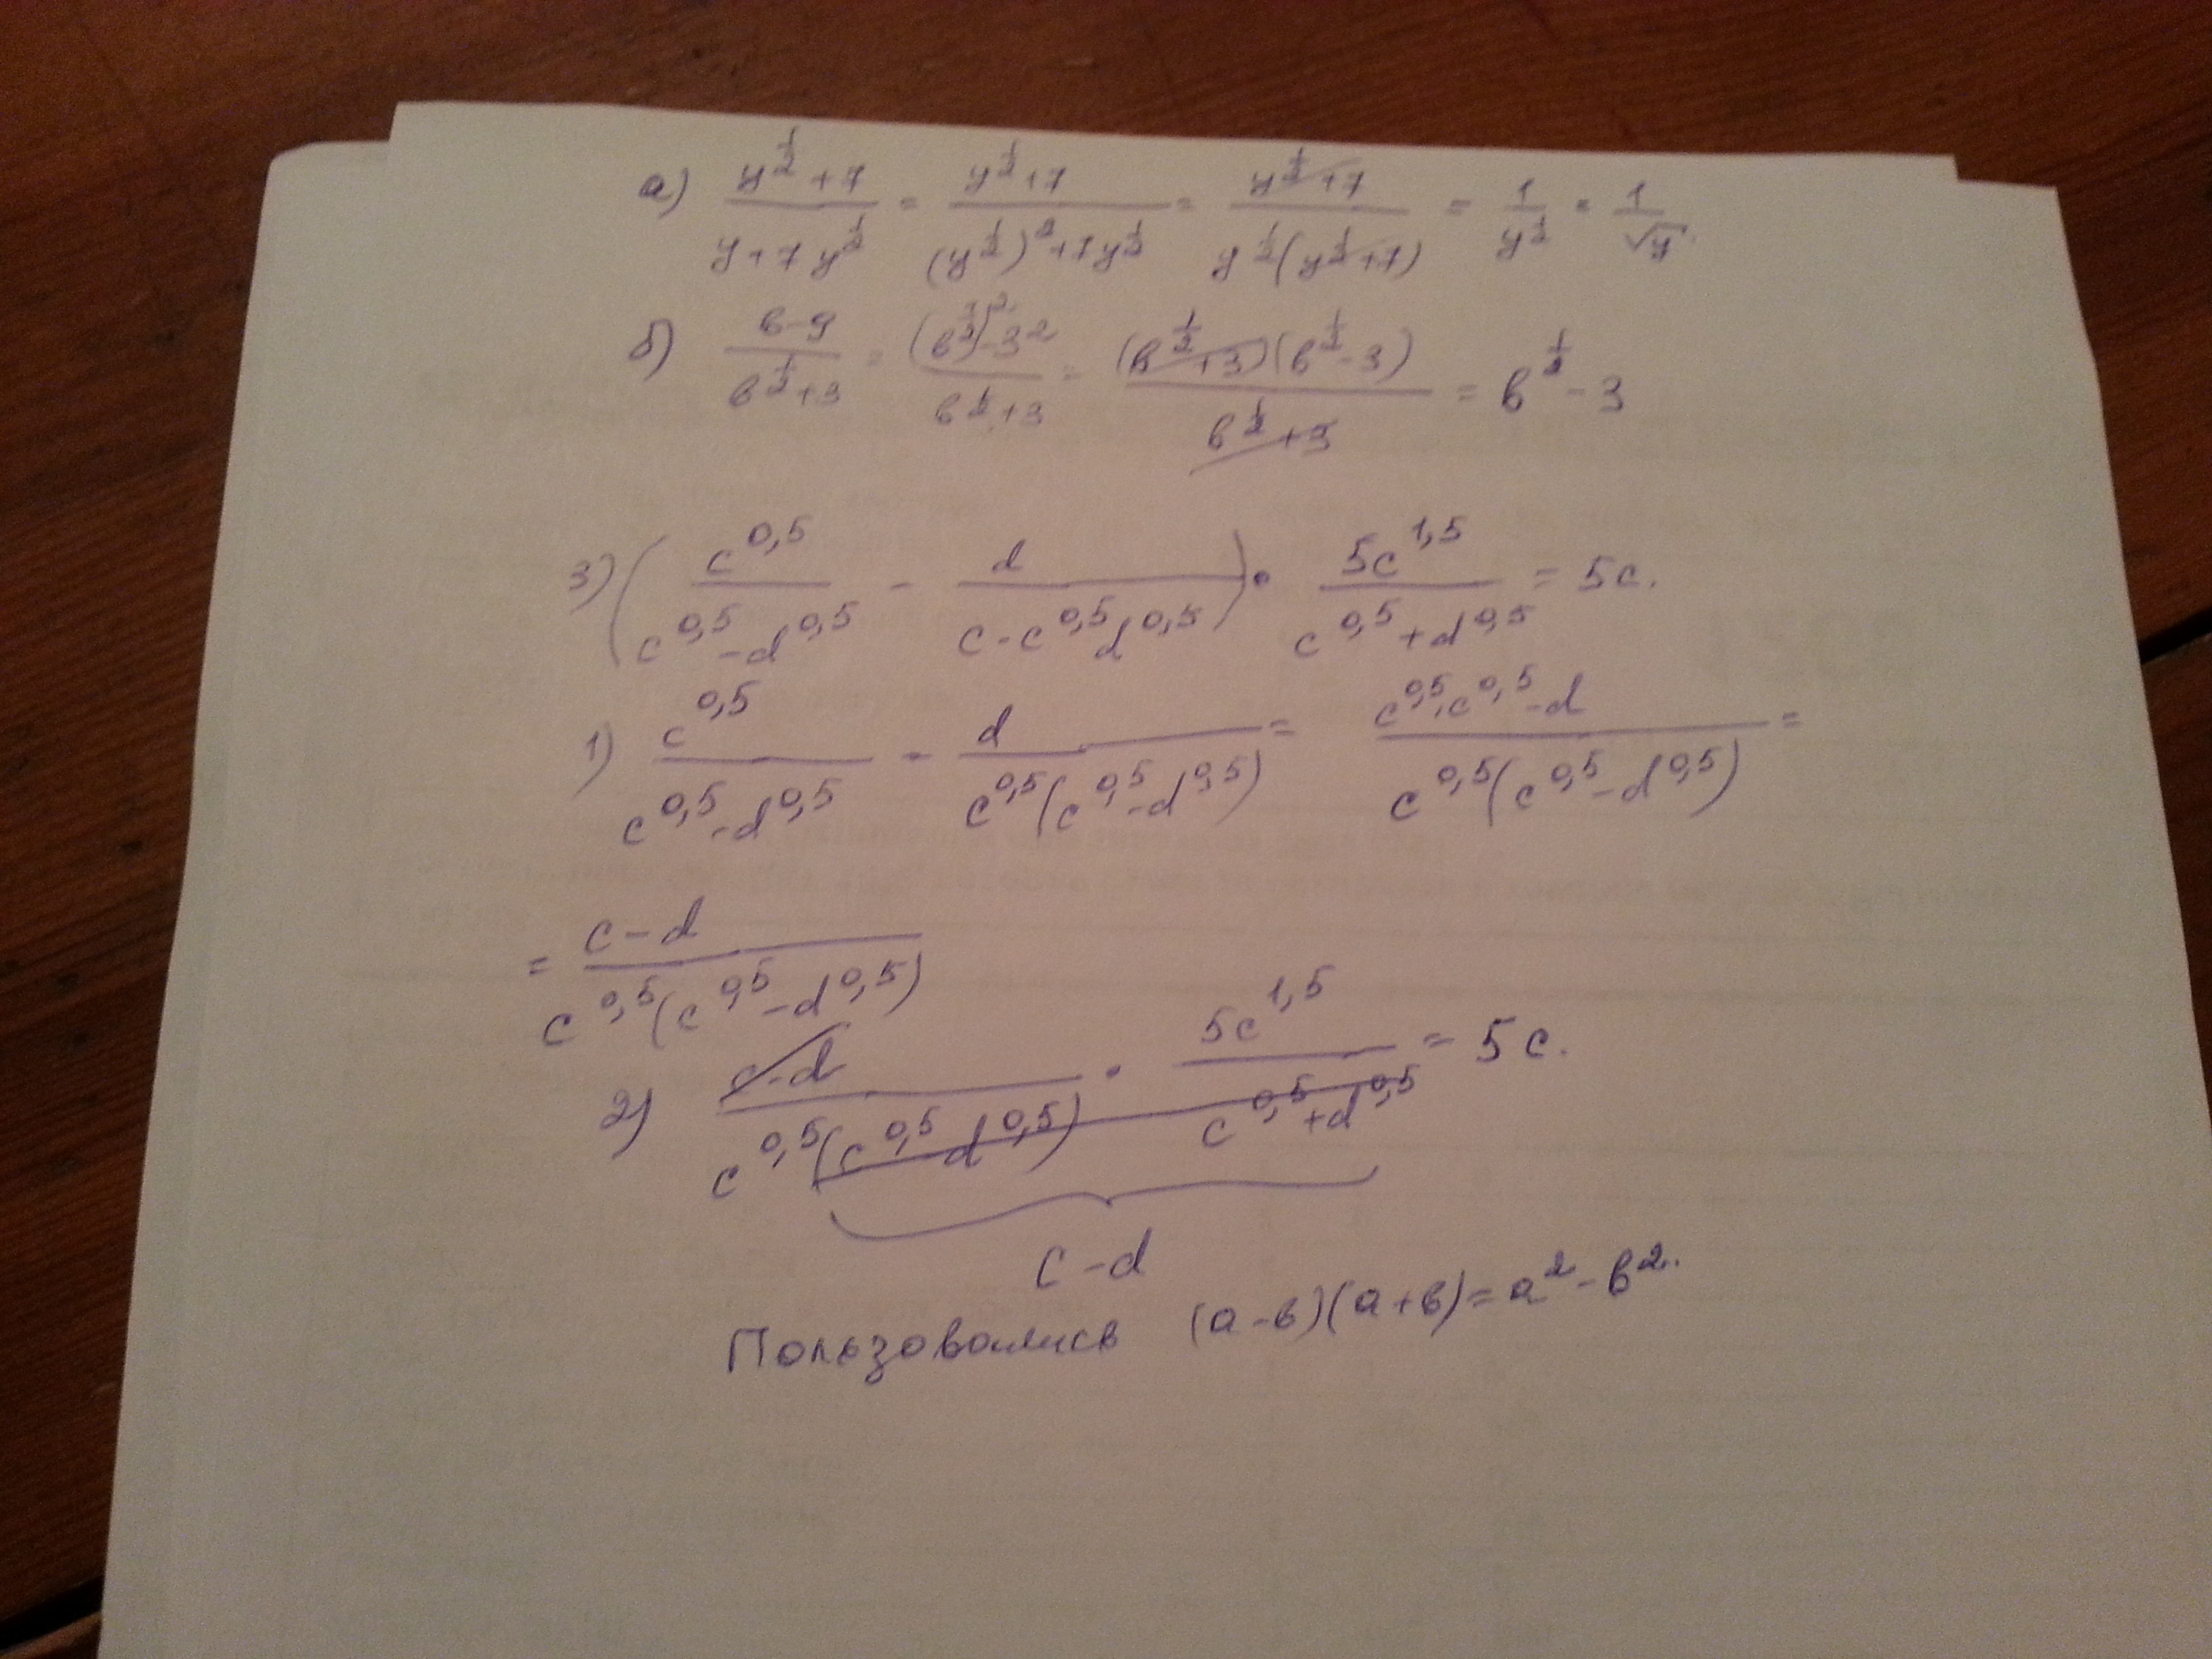 а) (y^(1/2) + 7)/(y + 7y^(1/2)) = (y^(1/2) + 7)/((y^(1/2))^2 + 7y^(1/2)) = (y^(1/2) + 7)/(y^(1/2)(y^(1/2) + 7)) = 1/y^(1/2) = 1/√y.
б) (в - 9)/(в^(1/2) + 3) = ((в^(1/2))^2 - 3^2)/(в^(1/2) + 3) = ((в^(1/2) + 3)(в^(1/2) - 3))/(в^(1/2) + 3) = в^(1/2) - 3
3) (c^0,5/(c^0,5 - d^0,5) - d/(c - c^0,5 d^0,5)) · 5c^1,5/(c^0,5 + d^0,5) = 5c.
1) c^0,5/(c^0,5 - d^0,5) - d/(c^0,5(c^0,5 - d^0,5)) = (c^0,5 · c^0,5 - d)/(c^0,5(c^0,5 - d^0,5)) =
= (c - d)/(c^0,5(c^0,5 - d^0,5))
2) (c - d)/(c^0,5(c^0,5 - d^0,5)) · 5c^1,5/(c^0,5 + d^0,5) = 5c.
c - d
Пользовались (а - в)(а + в) = а^2 - в^2.